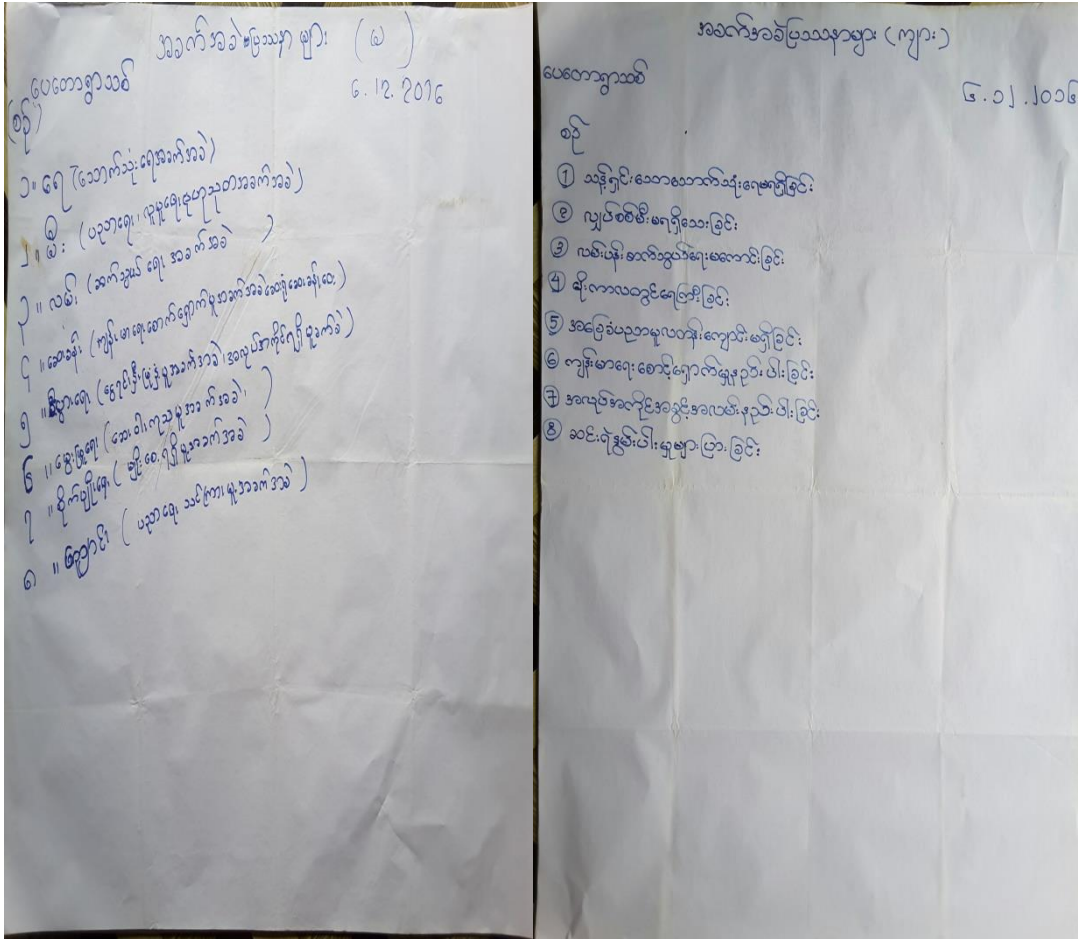 အခက်အခဲပြဿနာ များ (မ)
ပေတောရွာသစ်
6.12.2016
(စဉ်)
၁။ ရေ (သောက်သုံးရေအခက်အခဲ)
၂။ မီး (ပညာရေး၊ လူမှုရေး၊ ဗဟုသုတအခက်အခဲ)
၃။ လမ်း (ဆက်သွယ်ရေး အခက်အခဲ)
၄။ ဆေးခန်း (ကျန်းမာရေးစောက်ရှောက်မှုအခက်အခဲ
၅။ စီးပွားရေး (ငွေရင်းနှီးမြှုပ်နှံမှုအခက်အခဲ၊ အလုပ်အကိုင်ရရှိမှုခက်ခဲ)
၆။ မွေးမြူရေး (ဆေးဝါးကုသမှုအခက်အခဲ၊)
၇။ စိုက်ပျိုးရေး (မျိုးစေ့ရရှိမှုအခက်အခဲ)
၈။ ကျောင်း (ပညာရေး သင်ကြားမှုအခက်အခဲ)
အခက်အခဲပြဿနာများ (ကျား)
ပေတောရွာသစ်
၆.၁၂.၂၀၁၆
စဉ်
① သန့်ရှင်းသောသောက်သုံးရေမရရှိခြင်း
② လျှပ်စစ်မီးမရရှိသေးခြင်း
③ လမ်းပန်းဆက်သွယ်ရေးမကောင်းခြင်း
④ မိုးကာလတွင်ရေကြီးခြင်း
⑤ အခြေခံပညာမူလတန်းကျောင်းမရှိခြင်း
⑥ ကျန်းမာရေးစောင့်ရှောက်မှုနည်းပါးခြင်း
⑦ အလုပ်အကိုင်အခွင့်အလမ်းနည်းပါးခြင်း
⑧ ဆင်းရဲနွမ်းပါးမှုများပြားခြင်း